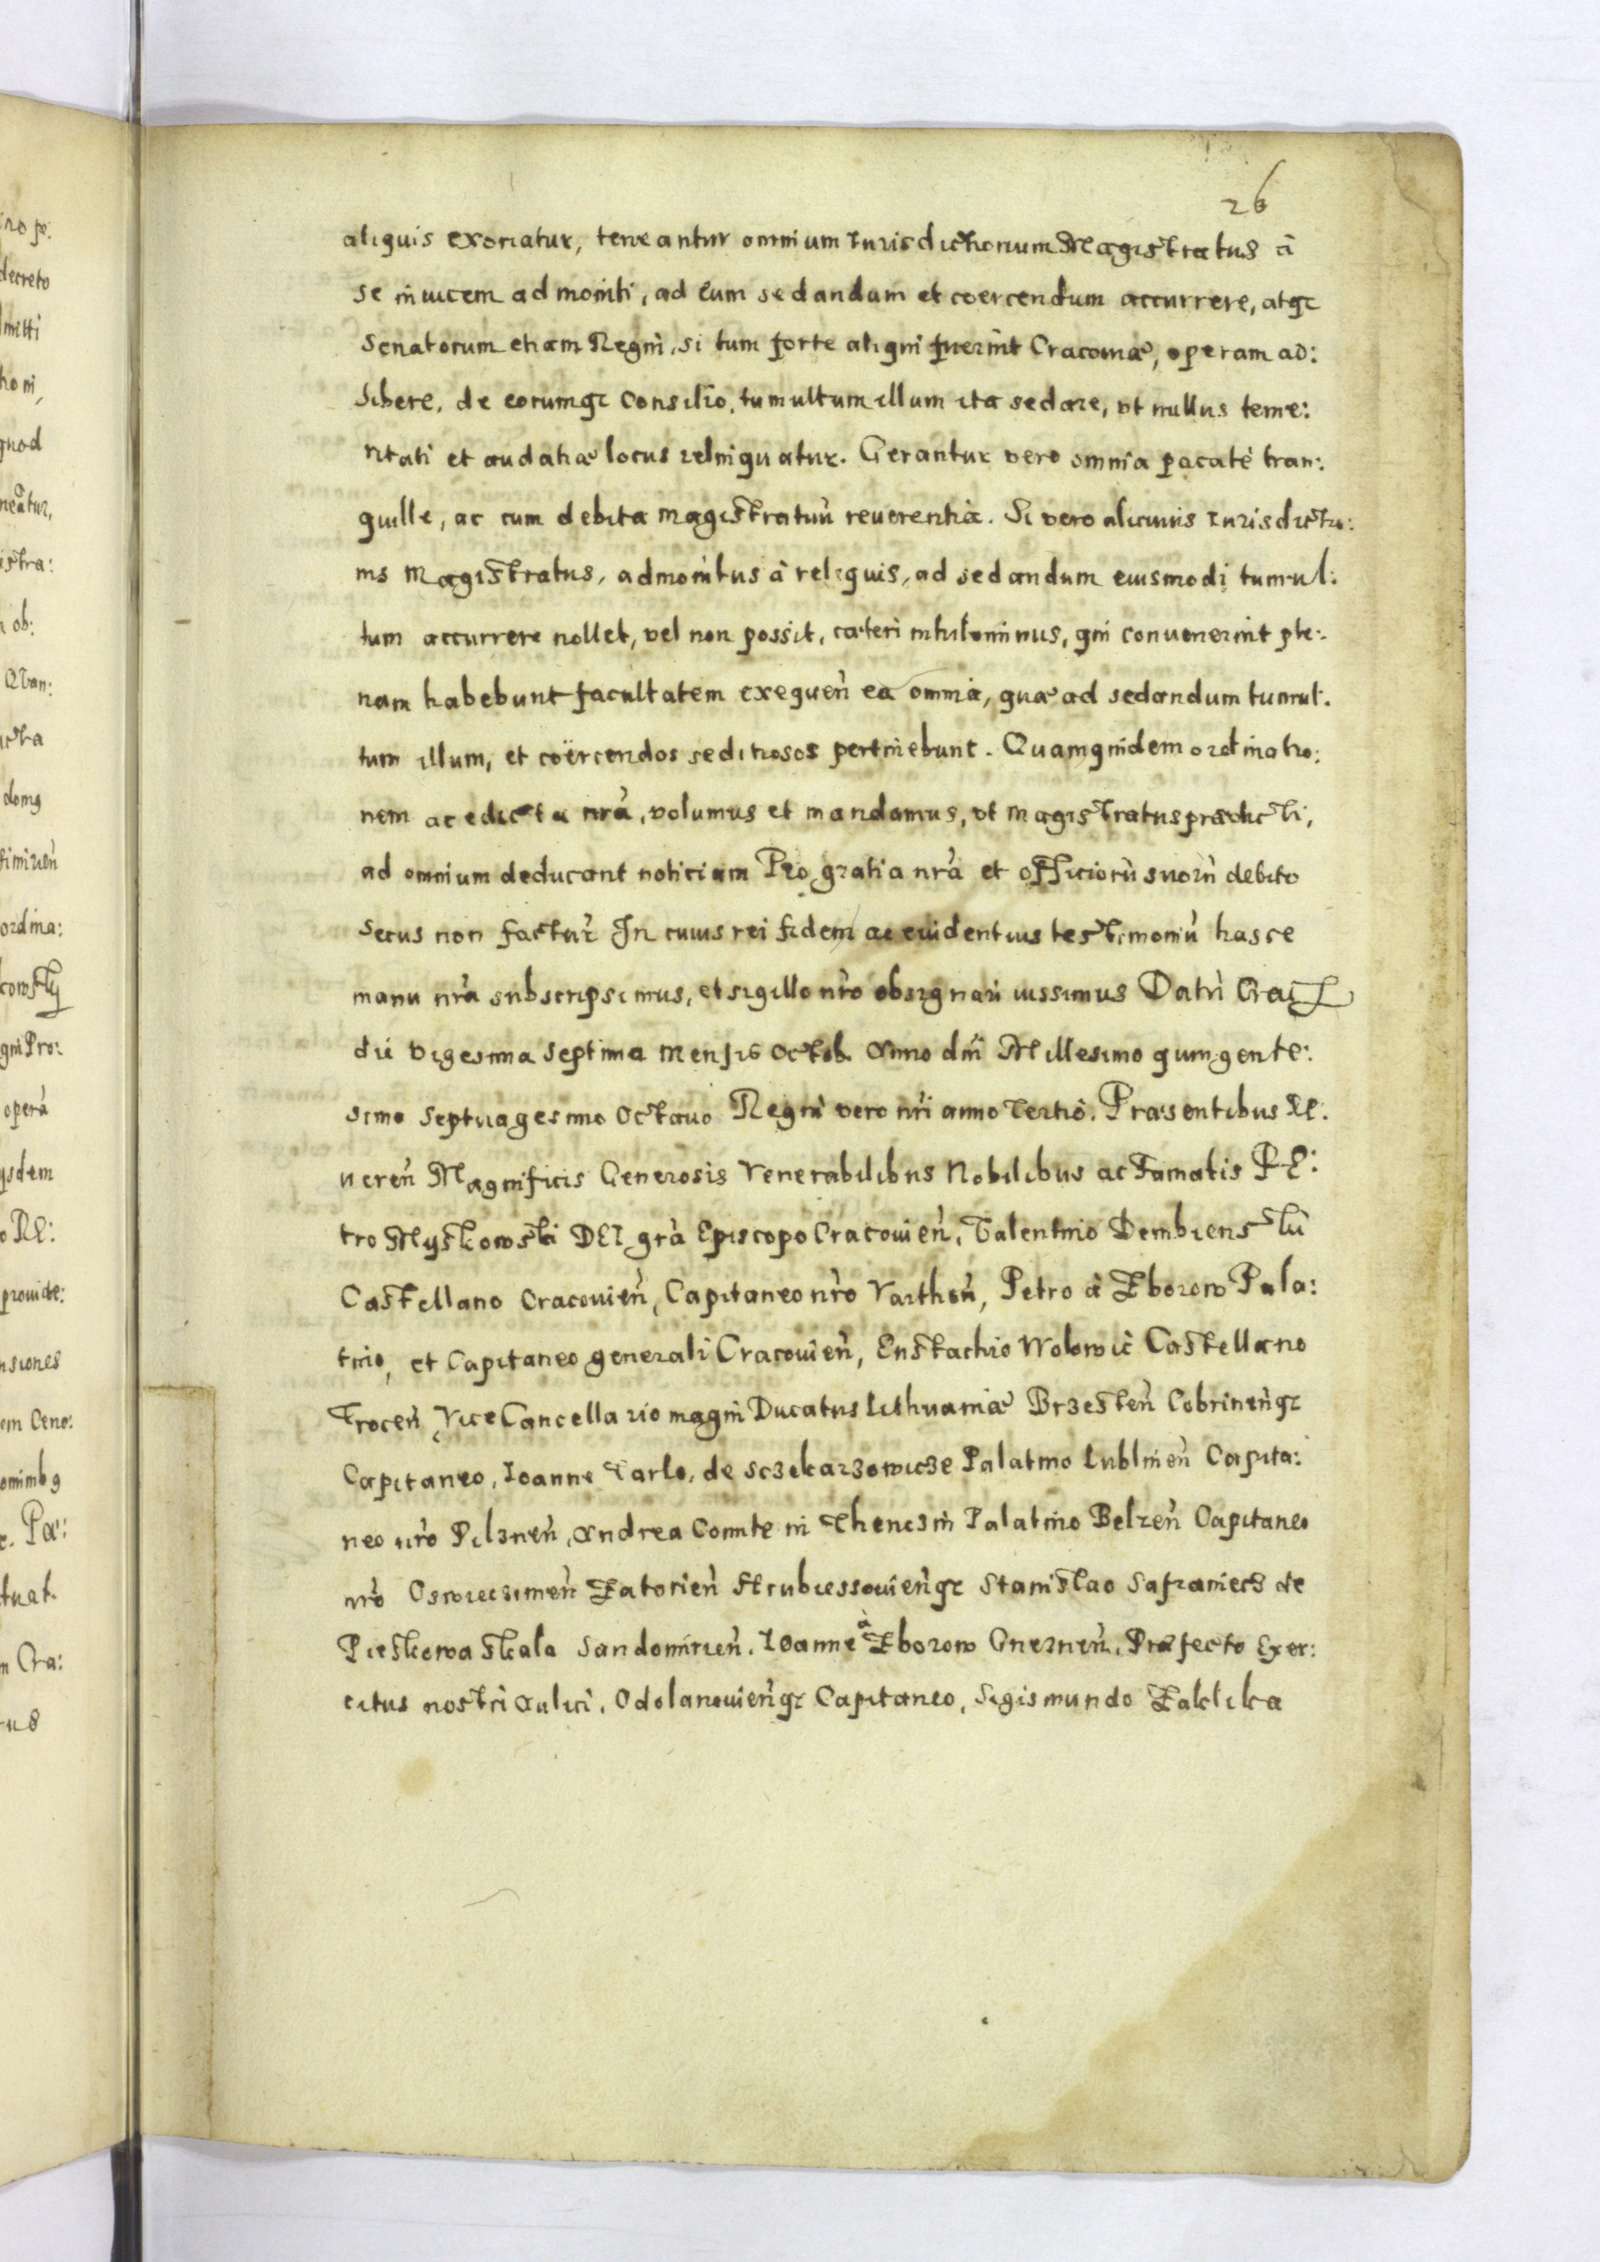 26
aliquis exoriatur, teneantur omnium Iurisdictionum Magistratus à
se inuicem admoniti, ad eum sedandum et coercendum accurrere, atq;
Senatorum etiam Regni, si tum forte aliqui fuerint Cracouiæ, operam ad:
hibere, de eorumq; Consilio, tumultum illum ita sedare, vt nullus teme:
ritati et audatiæ locus relinquatur. Gerantur vero omnia pacatè tran:
quille, ac cum debita magistratuũ reuerentia. Si vero alicuius Iurisdictio:
nis Magistratus, admonitus à reliquis, ad sedandum eiusmodi tumul:
tum accurrere nollet, vel non possit, cæteri nihilominus, qui conuenerint ple:
nam habebunt facultatem exequeñ ea omnia, quæ ad sedandum tumul:
tum illum, et coërcendos seditiosos pertinebunt. Quamquidem ordinatio:
nem ac edicta nrã, volumus et mandamus, vt magistratus prædicti,
ad omnium deducant noticiam Pro gratia nrã et officiorũ suorũ debito
secus non facturĩ In cuius rei fidem ac euidentius testimoniũ hasce
manu nrã subscripsimus, et sigillo nrõ obsignari iussimus Datũ Crac
die vigesima septima mensis Octob. Anno dñi Millesimo quingente:
simo septuagesimo Octauo Regni vero nrĩ anno Tertiò. Præsentibus RE:
uereñ Magnificis Generosis Venerabilibus Nobilibus ac Famatis PE:
tro Myszkowski DEI grã Episcopo Cracouieñ, Valentino Dembienski
Castellano Cracouieñ, Capitaneo nrõ Vartheñ, Petro à Zborow Pala:
tino, et Capitaneo generali Cracouieñ, Eustachio Wolowic Castellano
Troceñ Vice Cancellario magni Ducatus Lithuaniæ Brzesteñ Cobrineñq;
Capitaneo, Ioanne Tarlo, de Sczekarzowicze Palatino Lublineñ Capita:
neo nrõ Pilzneñ, Andrea Comite in Thenczin Palatino Belzeñ Capitaneo
nrõ Oswieczimeñ Zatorieñ Hrubiessouieñq; Stanislao Safraniecz de
Pieskowa Skala Sandomirieñ. Ioanne à Zborow Gnezneñ. Præfecto Exer:
citus nostri aulici, Odolanouieñq; Capitaneo, Sigismundo Zaklika